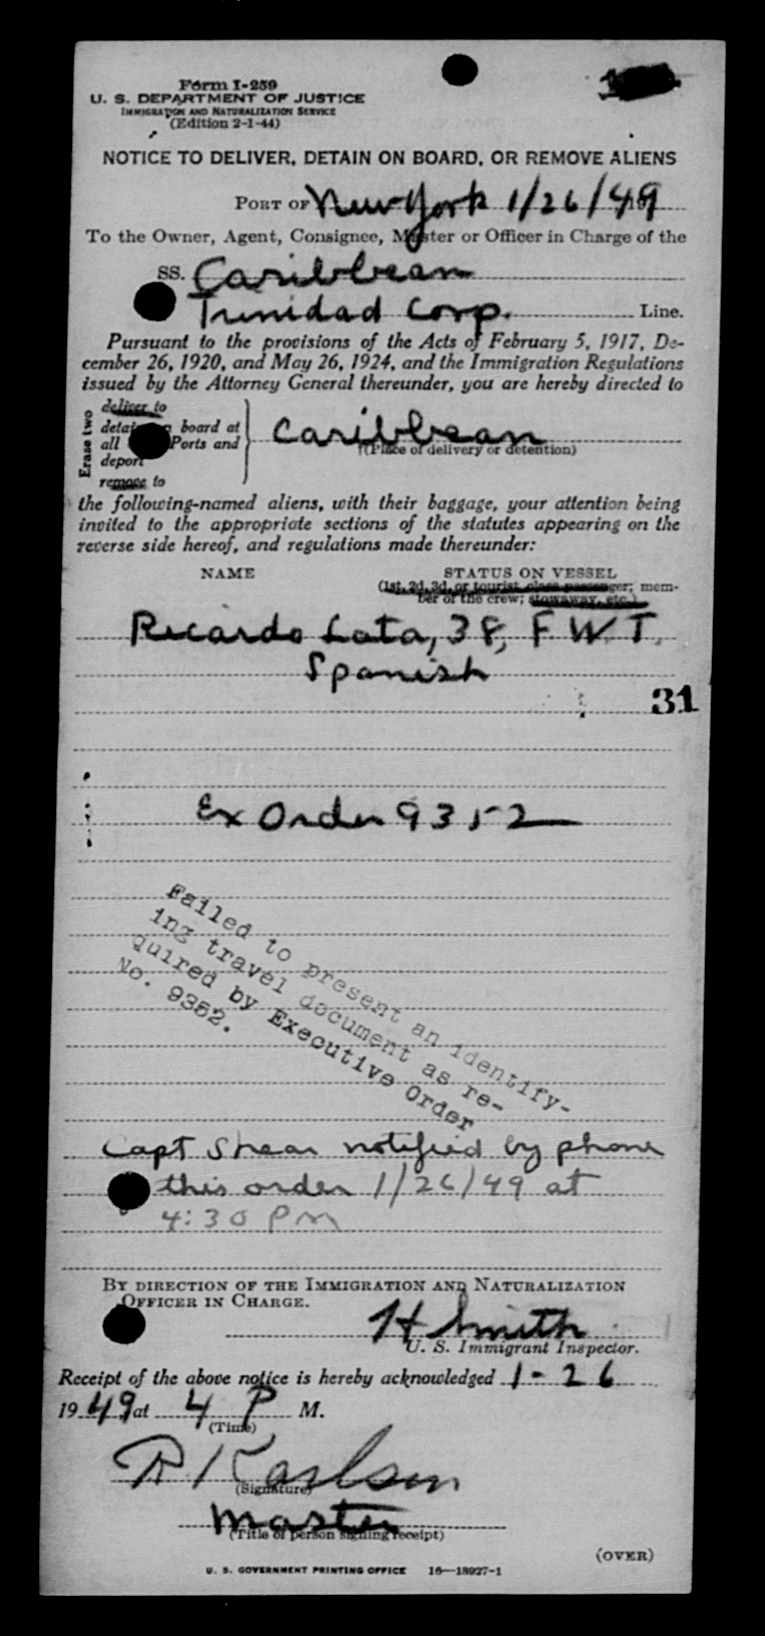 Form I-259
U. S. DEPARTMENT OF JUSTICE
IMMIGRATION AND NATURALIZATION SERVICE
(Edition 2-1-44)
NOTICE TO DELIVER, DETAIN ON BOARD, OR REMOVE ALIENS
PORT OF New York 1/26/49
To the Owner, Agent, Consignee, Master or Officer in Charge of the
SS. Caribbean
Trinidad Corp. Line.
Pursuant to the provisions of the Acts of February 5, 1917, De-
cember 26, 1920, and May 26, 1924, and the Immigration Regulations
issued by the Attorney General thereunder, you are hereby directed to
Erase two
deliver to
detain on board at
all Ports and
deport
remove to
Caribbean
(Place of delivery or detention)
the following-named aliens, with their baggage, your attention being
invited to the appropriate sections of the statutes appearing on the
reverse side hereof, and regulations made thereunder:
NAME STATUS ON VESSEL
(1st, 2d, 3d, or tourist class passenger; mem-
ber of the crew; stowaway, etc.)
Ricardo Lata, 38, F W T.
Spanish
31
Ex Order 9352
Failed to present an identify-
ing travel document as re-
quired by Executive Order
No. 9352.
Capt Shear notified by phone
this order 1/26/49 at
4:30 PM
BY DIRECTION OF THE IMMIGRATION AND NATURALIZATION
OFFICER IN CHARGE.
H Smith
U. S. Immigrant Inspector.
Receipt of the above notice is hereby acknowledged 1-26
1949 at 4 P M.
(Time)
R Karlson
(Signature)
Master
(Title of person signing receipt)
(OVER)
U. S. GOVERNMENT PRINTING OFFICE 16—18927-1